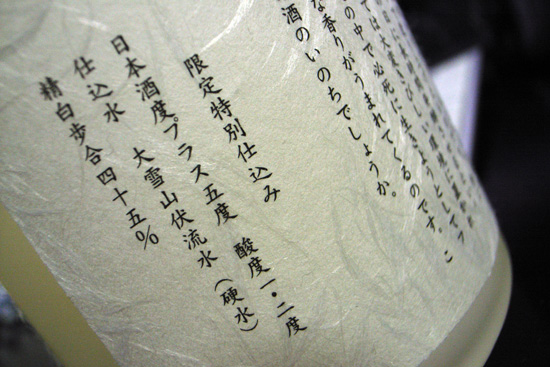 の中で必死に生きようとしてフ
な香りがうまれてくるのです。こ
酒のいのちでしょうか。
限定特別仕込み
日本酒度プラス五度 酸度一・二度
仕込水 大雪山伏流水（硬水）
精白歩合四十五%